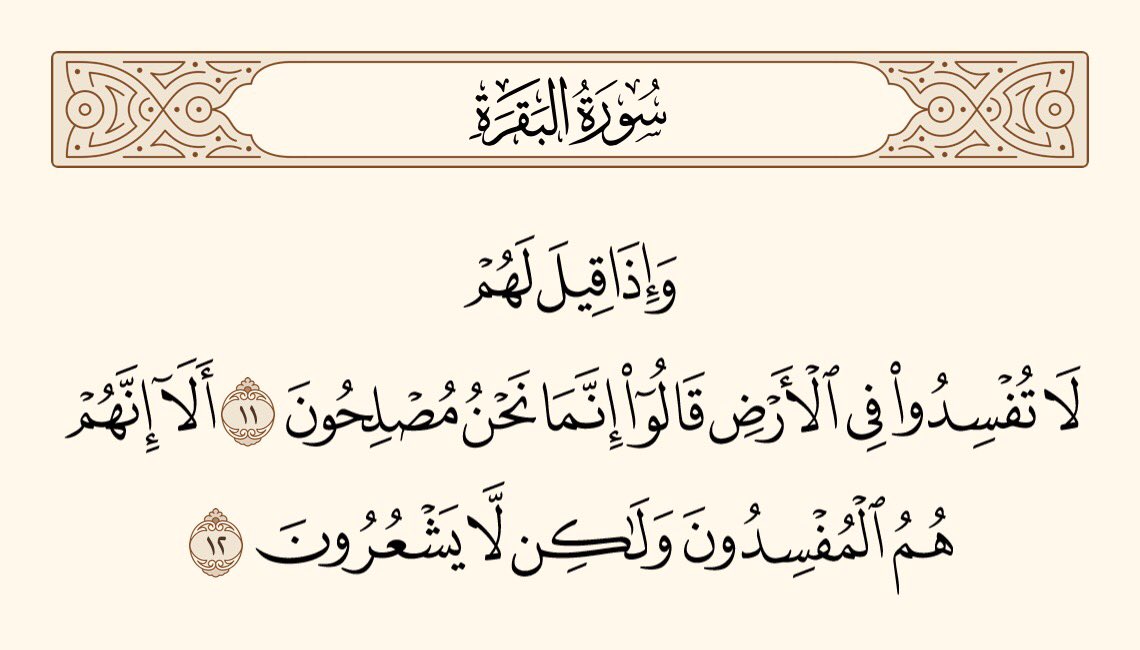 سُورَةُ البَقَرَةِ
وَإِذَا قِيلَ لَهُمۡ
لَا تُفۡسِدُواْ فِي ٱلۡأَرۡضِ قَالُوٓاْ إِنَّمَا نَحۡنُ مُصۡلِحُونَ ١١ أَلَآ إِنَّهُمۡ
هُمُ ٱلۡمُفۡسِدُونَ وَلَٰكِن لَّا يَشۡعُرُونَ ١٢